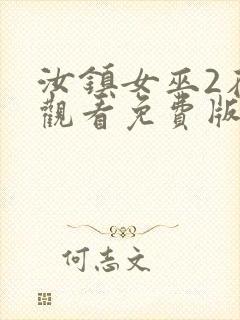 汝鎮女巫2在
觀看免費版
何志文